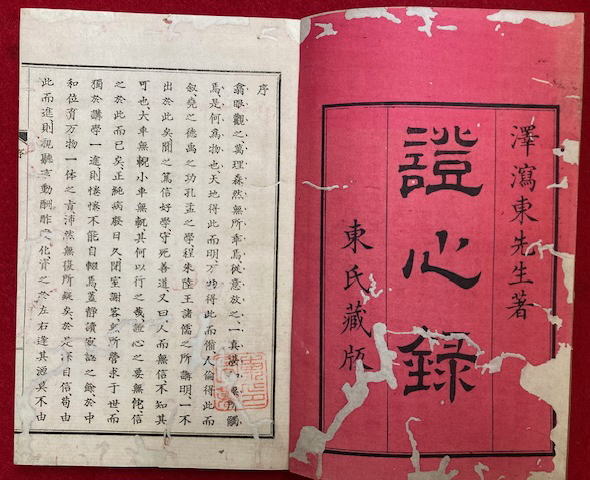 澤瀉東先生著
證心録
東氏藏版
序
翕眼觀之萬理森然無所牽焉從意放之一真湛無所觸
焉是何為物也天地得此而明万物得此而備人倫得此而
叙堯之德禹之功孔孟之學程朱陸王諸儒之所講明一不
出於此矣聞之篤信好學守死善道又曰人而無信不知其
可也大車無輗小車無軏其何以行之哉證心之要無佗信
之於此而已矣正純病廢日久閉室謝客無所營求于世而
獨於講學一進則惓惓不能自輟焉蓋靜讀寂認之餘於中
和位育万物一体之旨沛然無復所疑矣於是自信苟由
此而進則視聽言動酬酢化資之於左右逢其源莫不由